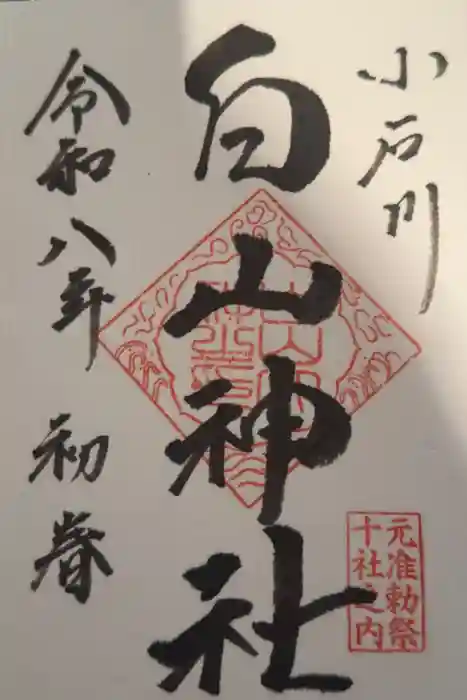 小石川
白山神社
元准勅祭
十社之内
令和八年 初春